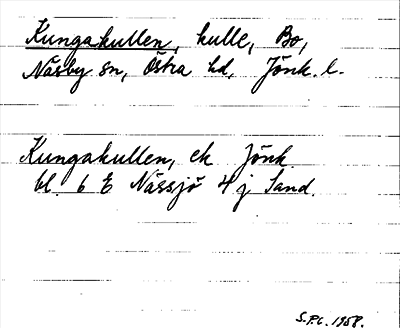 Kungakullen, kulle, Bo,
Näsby sn, Östra hd, Jönk. l.
Kungakullen, ek Jönk.
bl. 6 E Nässjö 4 j Sand.
S.F.L. 1958.